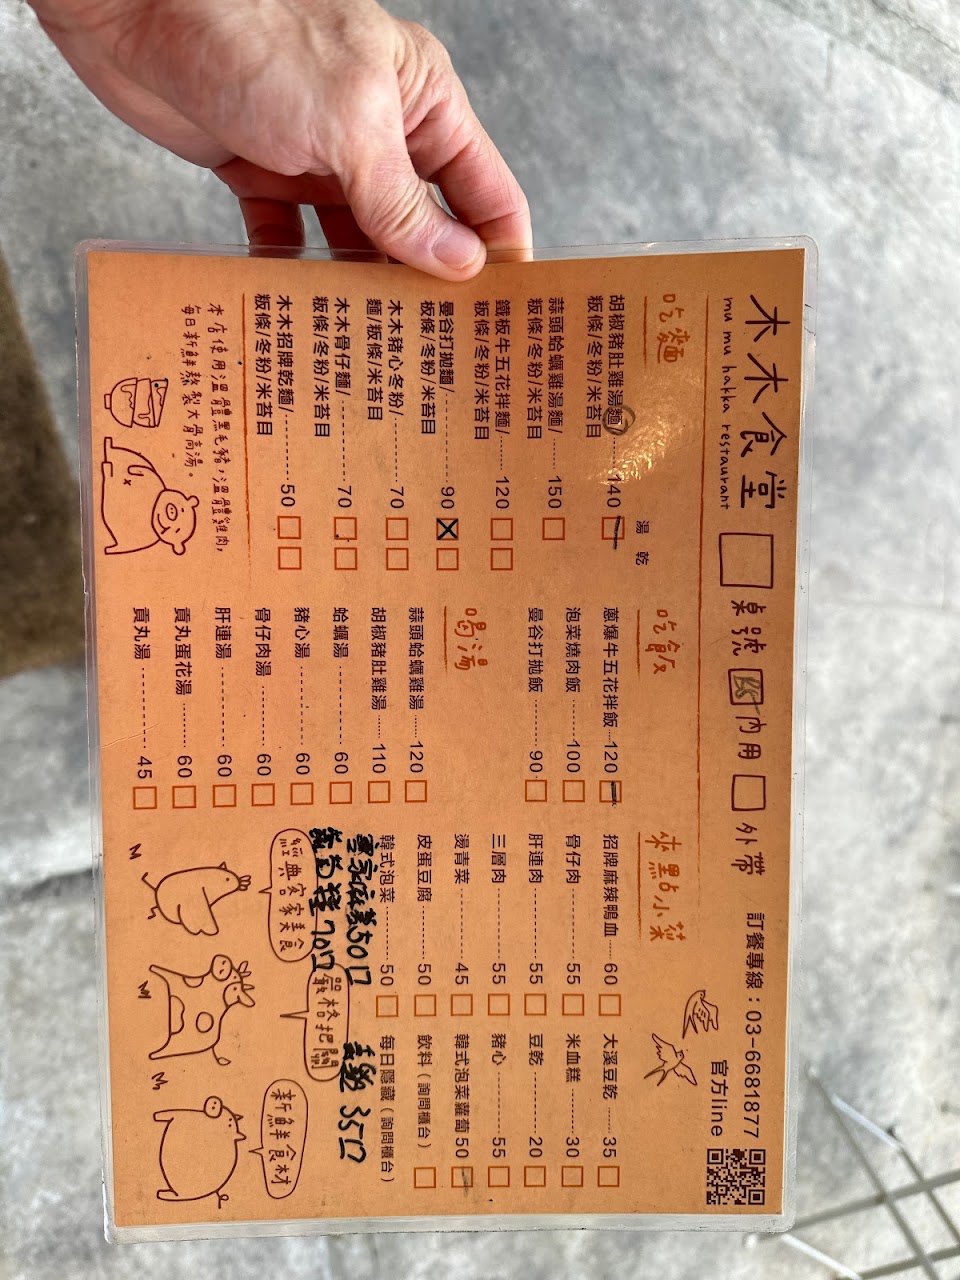 木木食堂
mu mu hakka restaurant
桌號 內用 外帶
訂餐專線：03-6681877
官方line
吃麵
湯 乾
胡椒豬肚雞湯麵/········140
粄條/冬粉/米苔目
蒜頭蛤蠣雞湯麵/········150
粄條/冬粉/米苔目
鐵板牛五花拌麵/········120
粄條/冬粉/米苔目
曼谷打拋麵/················90
粄條/冬粉/米苔目
木木豬心冬粉/············70
麵/粄條/米苔目
木木骨仔麵/················70
粄條/冬粉/米苔目
木木招牌乾麵/············50
粄條/冬粉/米苔目
本店使用溫體黑毛豬，溫體雞肉，
每日新鮮熬製大骨高湯。
吃飯
蔥爆牛五花拌飯····120
泡菜燒肉飯··········100
曼谷打拋飯············90
喝湯
蒜頭蛤蠣雞湯·····120
胡椒豬肚雞湯·····110
蛤蠣湯················60
豬心湯················60
骨仔肉湯·············60
肝連湯················60
貢丸蛋花湯··········60
貢丸湯················45
來點小菜
招牌麻辣鴨血·····60
骨仔肉················55
肝連肉················55
三層肉················55
燙青菜················45
皮蛋豆腐·············50
韓式泡菜·············50
大溪豆乾······35
米血糕·········30
豆乾············20
豬心············55
韓式泡菜蘿蔔50
飲料（詢問櫃台）
每日隱藏（詢問櫃台）
客家麻糬50口
70口
35口
經典客家美食
嚴格把關
新鮮食材